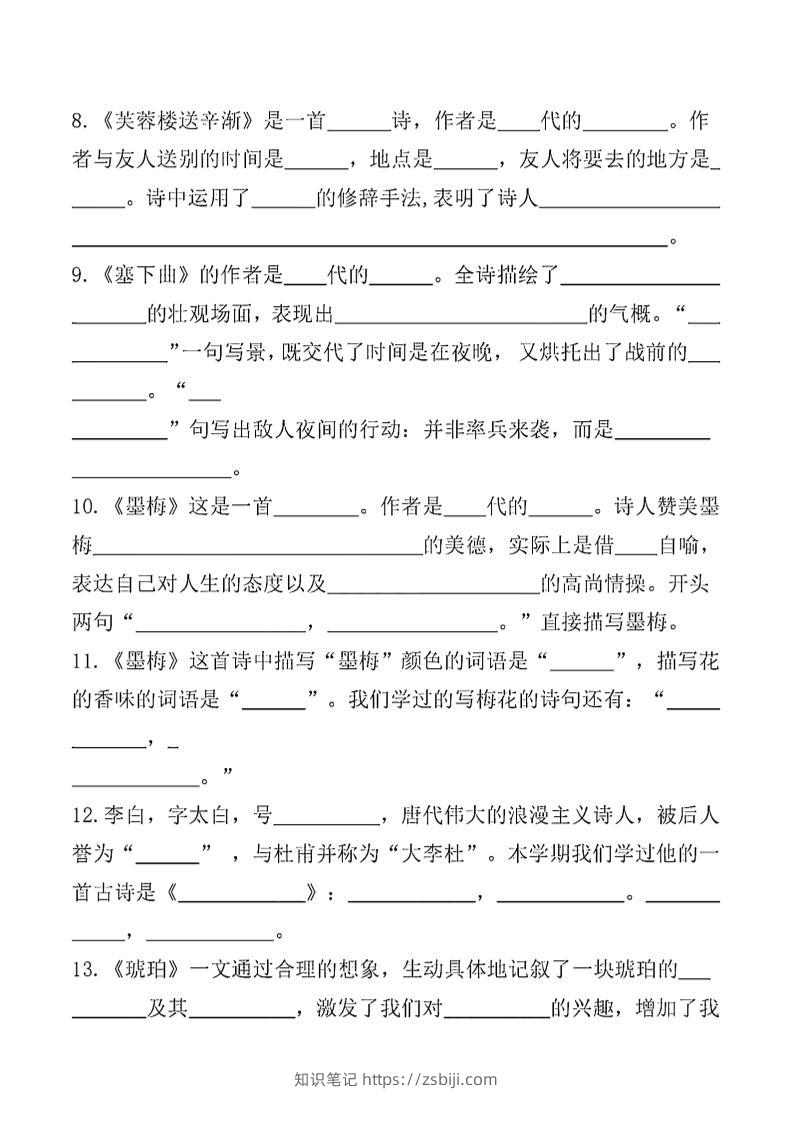 8.《芙蓉楼送辛渐》是一首______诗，作者是____代的________。作
者与友人送别的时间是______，地点是______，友人将要去的地方是_
_____。诗中运用了______的修辞手法,表明了诗人_________________
________________________________________________________。
9.《塞下曲》的作者是____代的______。全诗描绘了_______________
_______的壮观场面，表现出________________________的气概。“___
_________”一句写景,既交代了时间是在夜晚， 又烘托出了战前的___
_______。“___
_________”句写出敌人夜间的行动：并非率兵来袭，而是_________
_______________。
10.《墨梅》这是一首________。作者是____代的______。诗人赞美墨
梅_______________________________的美德，实际上是借____自喻，
表达自己对人生的态度以及____________________的高尚情操。开头
两句“________________，________________。”直接描写墨梅。
11.《墨梅》这首诗中描写“墨梅”颜色的词语是“______”，描写花
的香味的词语是“______”。我们学过的写梅花的诗句还有：“_____
_______，_
____________。”
12.李白，字太白，号__________，唐代伟大的浪漫主义诗人，被后人
誉为“______” ，与杜甫并称为“大李杜”。本学期我们学过他的一
首古诗是《____________》：____________，____________。_______
_____，____________。
13.《琥珀》一文通过合理的想象，生动具体地记叙了一块琥珀的___
_______及其__________，激发了我们对__________的兴趣，增加了我
知识笔记 https://zsbiji.com